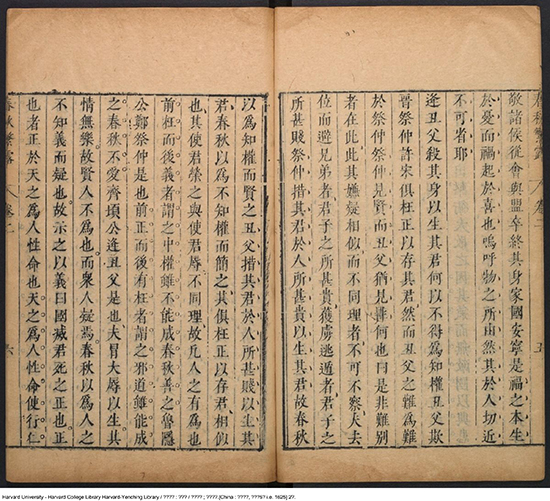 敬諸侯從會與盟卒終其身家國安寧是福之本生
於憂而禍起於喜也嗚呼物之所由然其於人切近
不可省耶
逢丑父殺其身以生其君何以不得為知權丑父欺
晉祭仲許宋俱枉正以存其君然而丑父之難為難
於祭仲祭仲見賢而丑父猶見非何也曰是非難別
者在此此其嫌疑相似而不同理者不可不察夫去
位而避兄弟者君子之所甚貴獲虜逃遁者君子之
所甚賤祭仲措其君於人所甚貴以生其君故春秋
以為知權而賢之丑父措其君於人所甚賤以生其
君春秋以為不知權而簡之其俱枉正以存君相似
也其使君榮之與使君辱不同理故凡人之有為也
前枉而後義者謂之中權雖不能成春秋善之魯隱
公鄭祭仲是也前正而後有枉者謂之邪道雖能成
之春秋不愛齊頃公逢丑父是也夫冒大辱以生其
情無樂故賢人不為也而衆人疑焉春秋以為人之
不知義而疑也故示之以義曰國滅君死之正也正
也者正於天之為人性命也天之為人性命使行仁
春秋繁露 卷二 六